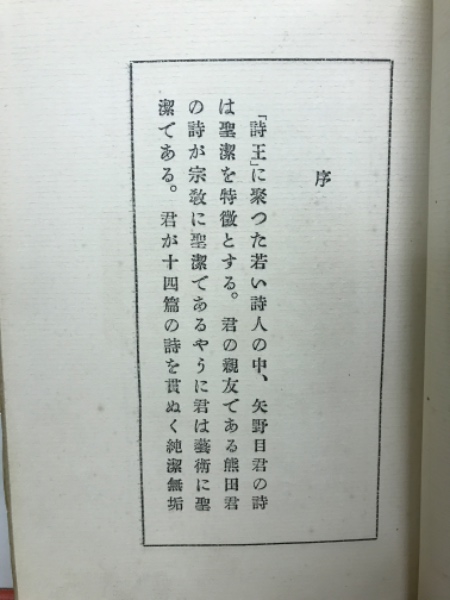 序
「詩王」に聚つた若い詩人の中、矢野目君の詩
は聖潔を特徴とする。君の親友である熊田君
の詩が宗教に聖潔であるやうに君は藝術に聖
潔である。君が十四篇の詩を貫ぬく純潔無垢